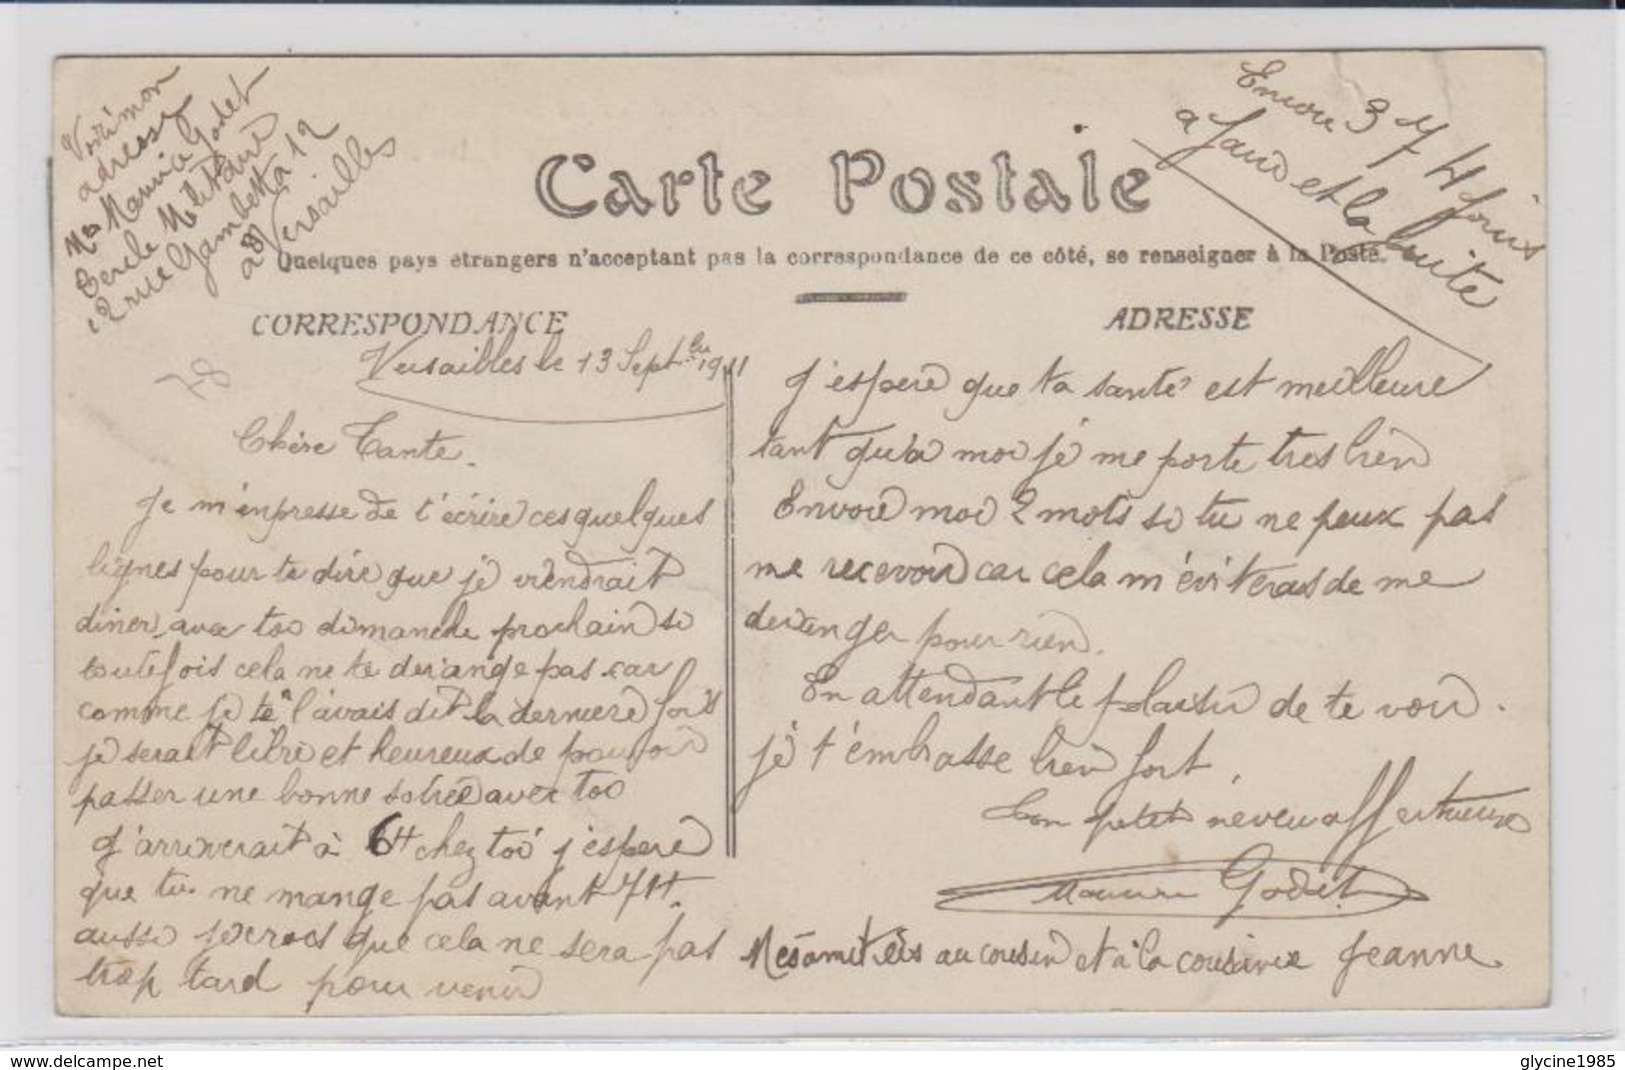 Voici mon
adresse
Mr Maurice Godet
Cercle Militaire
12 rue Gambetta 12
à Versailles
Encore 374 jours
a faire et la
suite
Carte Postale
Quelques pays étrangers n'acceptant pas la correspondance de ce côté, se renseigner à la Poste.
CORRESPONDANCE
ADRESSE
78
Versailles le 13 Septbre 1911
Chère Tante.
Je m'enpresse de t'écrire ces quelques
lignes pour te dire que je viendrait
diner avec toi dimanche prochain si
toutefois cela ne te derange pas car
comme je te l'avais dit la derniere fois
je serait libre et heureux de pouvoir
passer une bonne soirée avec toi
J'arriverait à 6H chez toi j'espere
que tu ne mange pas avant 7H.
aussi je crois que cela ne sera pas
trop tard pour venir
J'espere que ta santé est meilleure
tant qu'a moi je me porte tres bien
Envoie moi 2 mots si tu ne peux pas
me recevoir car cela m'éviteras de me
deranger pour rien.
En attendant le plaisir de te voir.
je t'embrasse bien fort.
Ton petit neveu affectueux
Maurice Godet
Mes amitiées au cousin et à la cousine Jeanne.
www.delcampe.net
glycine1985